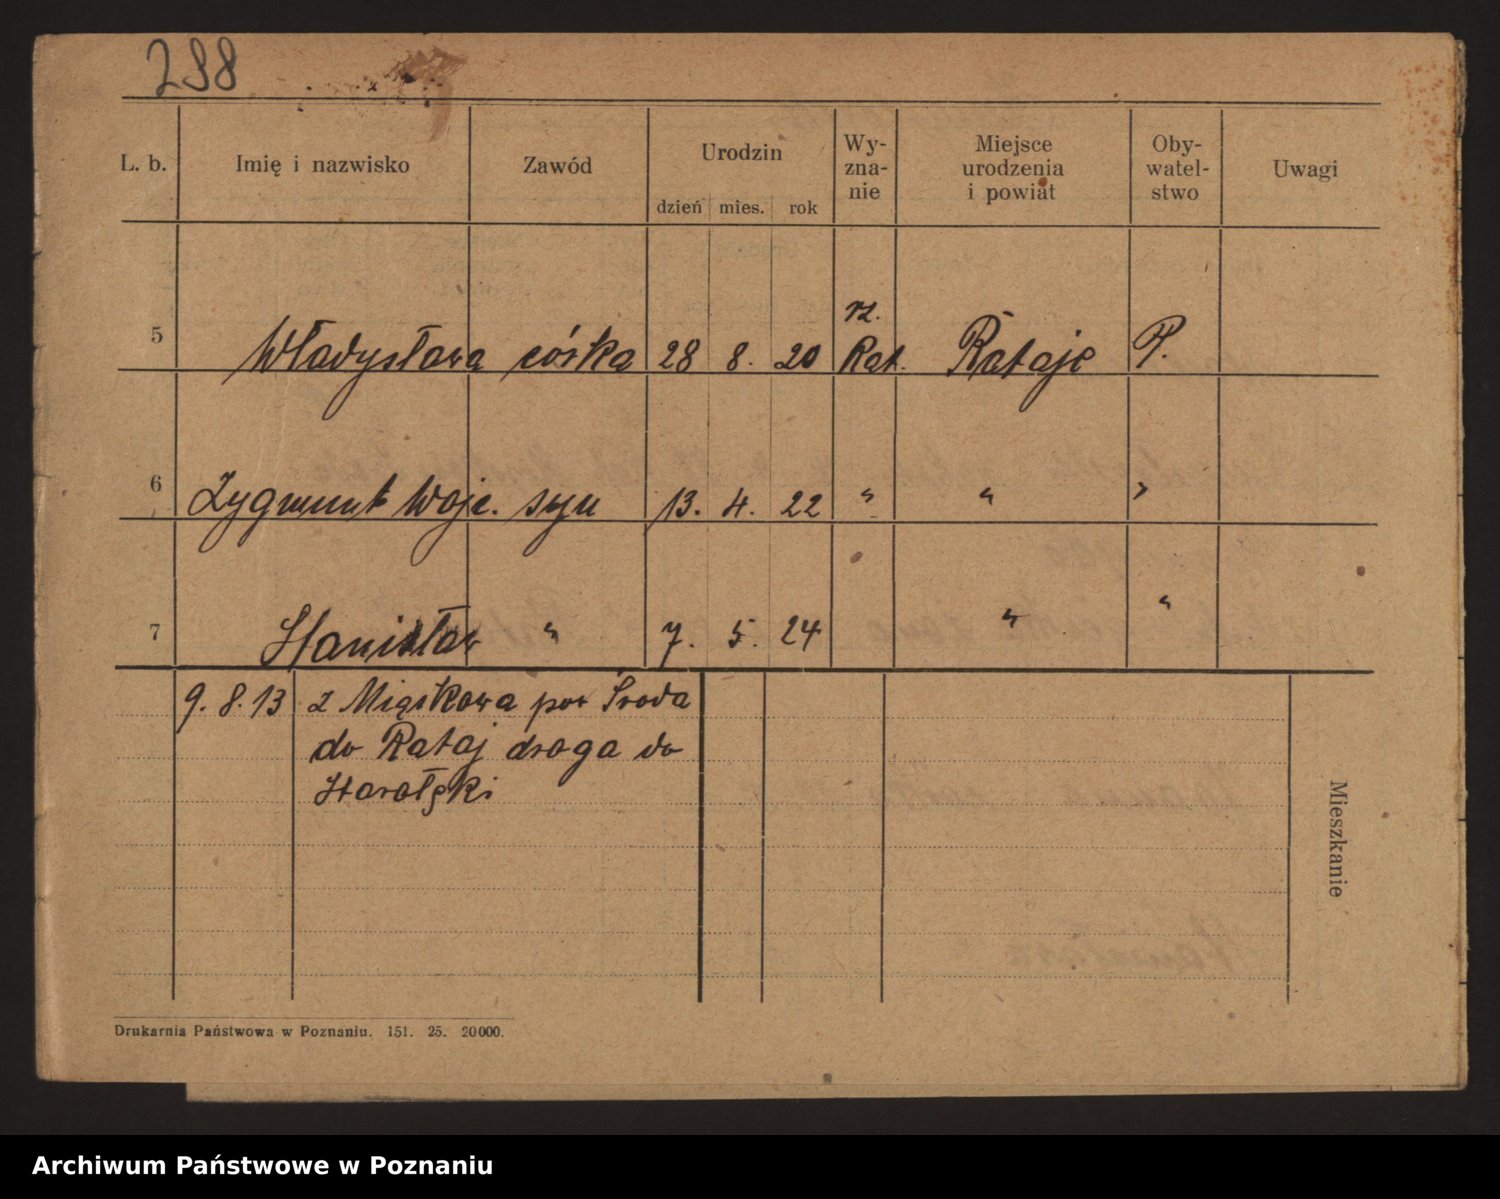 298
L. b.
Imię i nazwisko
Zawód
Urodzin
dzień mies. rok
Wy-
zna-
nie
Miejsce
urodzenia
i powiat
Oby-
watel-
stwo
Uwagi
rz.
5 Władysława córka 28 8. 20 Kat. Rataje P.
6 Zygmunt Wojc. syn 13. 4. 22 " " "
7 Stanisław " 7. 5. 24 " "
9. 8. 13 z Miąskowa pow Środa
do Rataj droga do
Mieszkanie
Drukarnia Państwowa w Poznaniu. 151. 25. 20000.
Archiwum Państwowe w Poznaniu